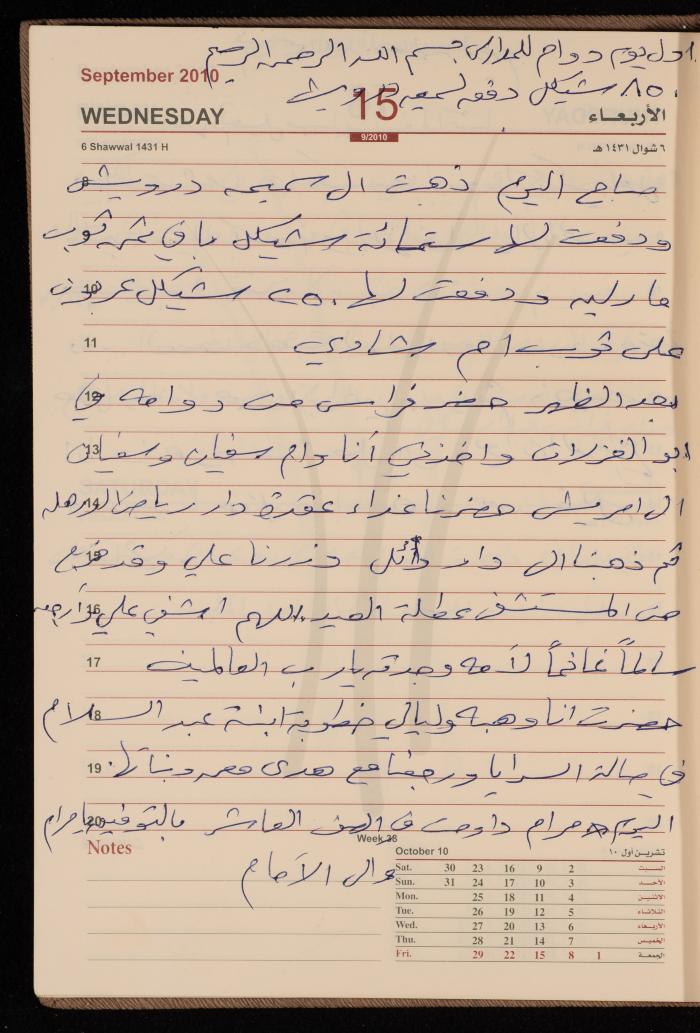 اول يوم دوام للمدارس بسم الله الرحمن الرحيم
September 2010
٨٥٠ شيكل دفعه لسميحه درويش
15
WEDNESDAY
الأربعاء
9/2010
6 Shawwal 1431 H
٦ شوال ١٤٣١ هـ
8 صباح اليوم ذهبت ال سميحه درويش
ودفعت لها ستمائة شيكل باقي ثمن ثوب
10 مارلين ودفعت لها ٢٥٠ شيكل عربون
11 على ثوب ام شادي
12 بعد الظهر حضر فراس من دوامه في
13 ابو الغزلان واخذني أنا وام سفيان وسفيان
14 ال امريش حضرنا غداء عقدة دار رياض
15 ثم ذهبنا ال دار وائل وزرنا علي وقد خرج
16 من المستشفى عطلة العيد اللهم اشفي علي وأرجعه
17 سالماً غانماً لأمه وجدته يارب العالمين
18 حضرت انا وهبه وليالي خطوبة ابنة عبد السلام
19 في صالة السرايا ورجعنا مع هدى عمر وبناتها
20 اليوم مرام داومت في الصف العاشر بالتوفيق يا مرام
Week 38
Notes
وال الأمام
October 10
تشرين أول ١٠
Sat. 30 23 16 9 2 السبت
Sun. 31 24 17 10 3 الأحد
Mon. 25 18 11 4 الاثنين
Tue. 26 19 12 5 الثلاثاء
Wed. 27 20 13 6 الأربعاء
Thu. 28 21 14 7 الخميس
Fri. 29 22 15 8 1 الجمعة